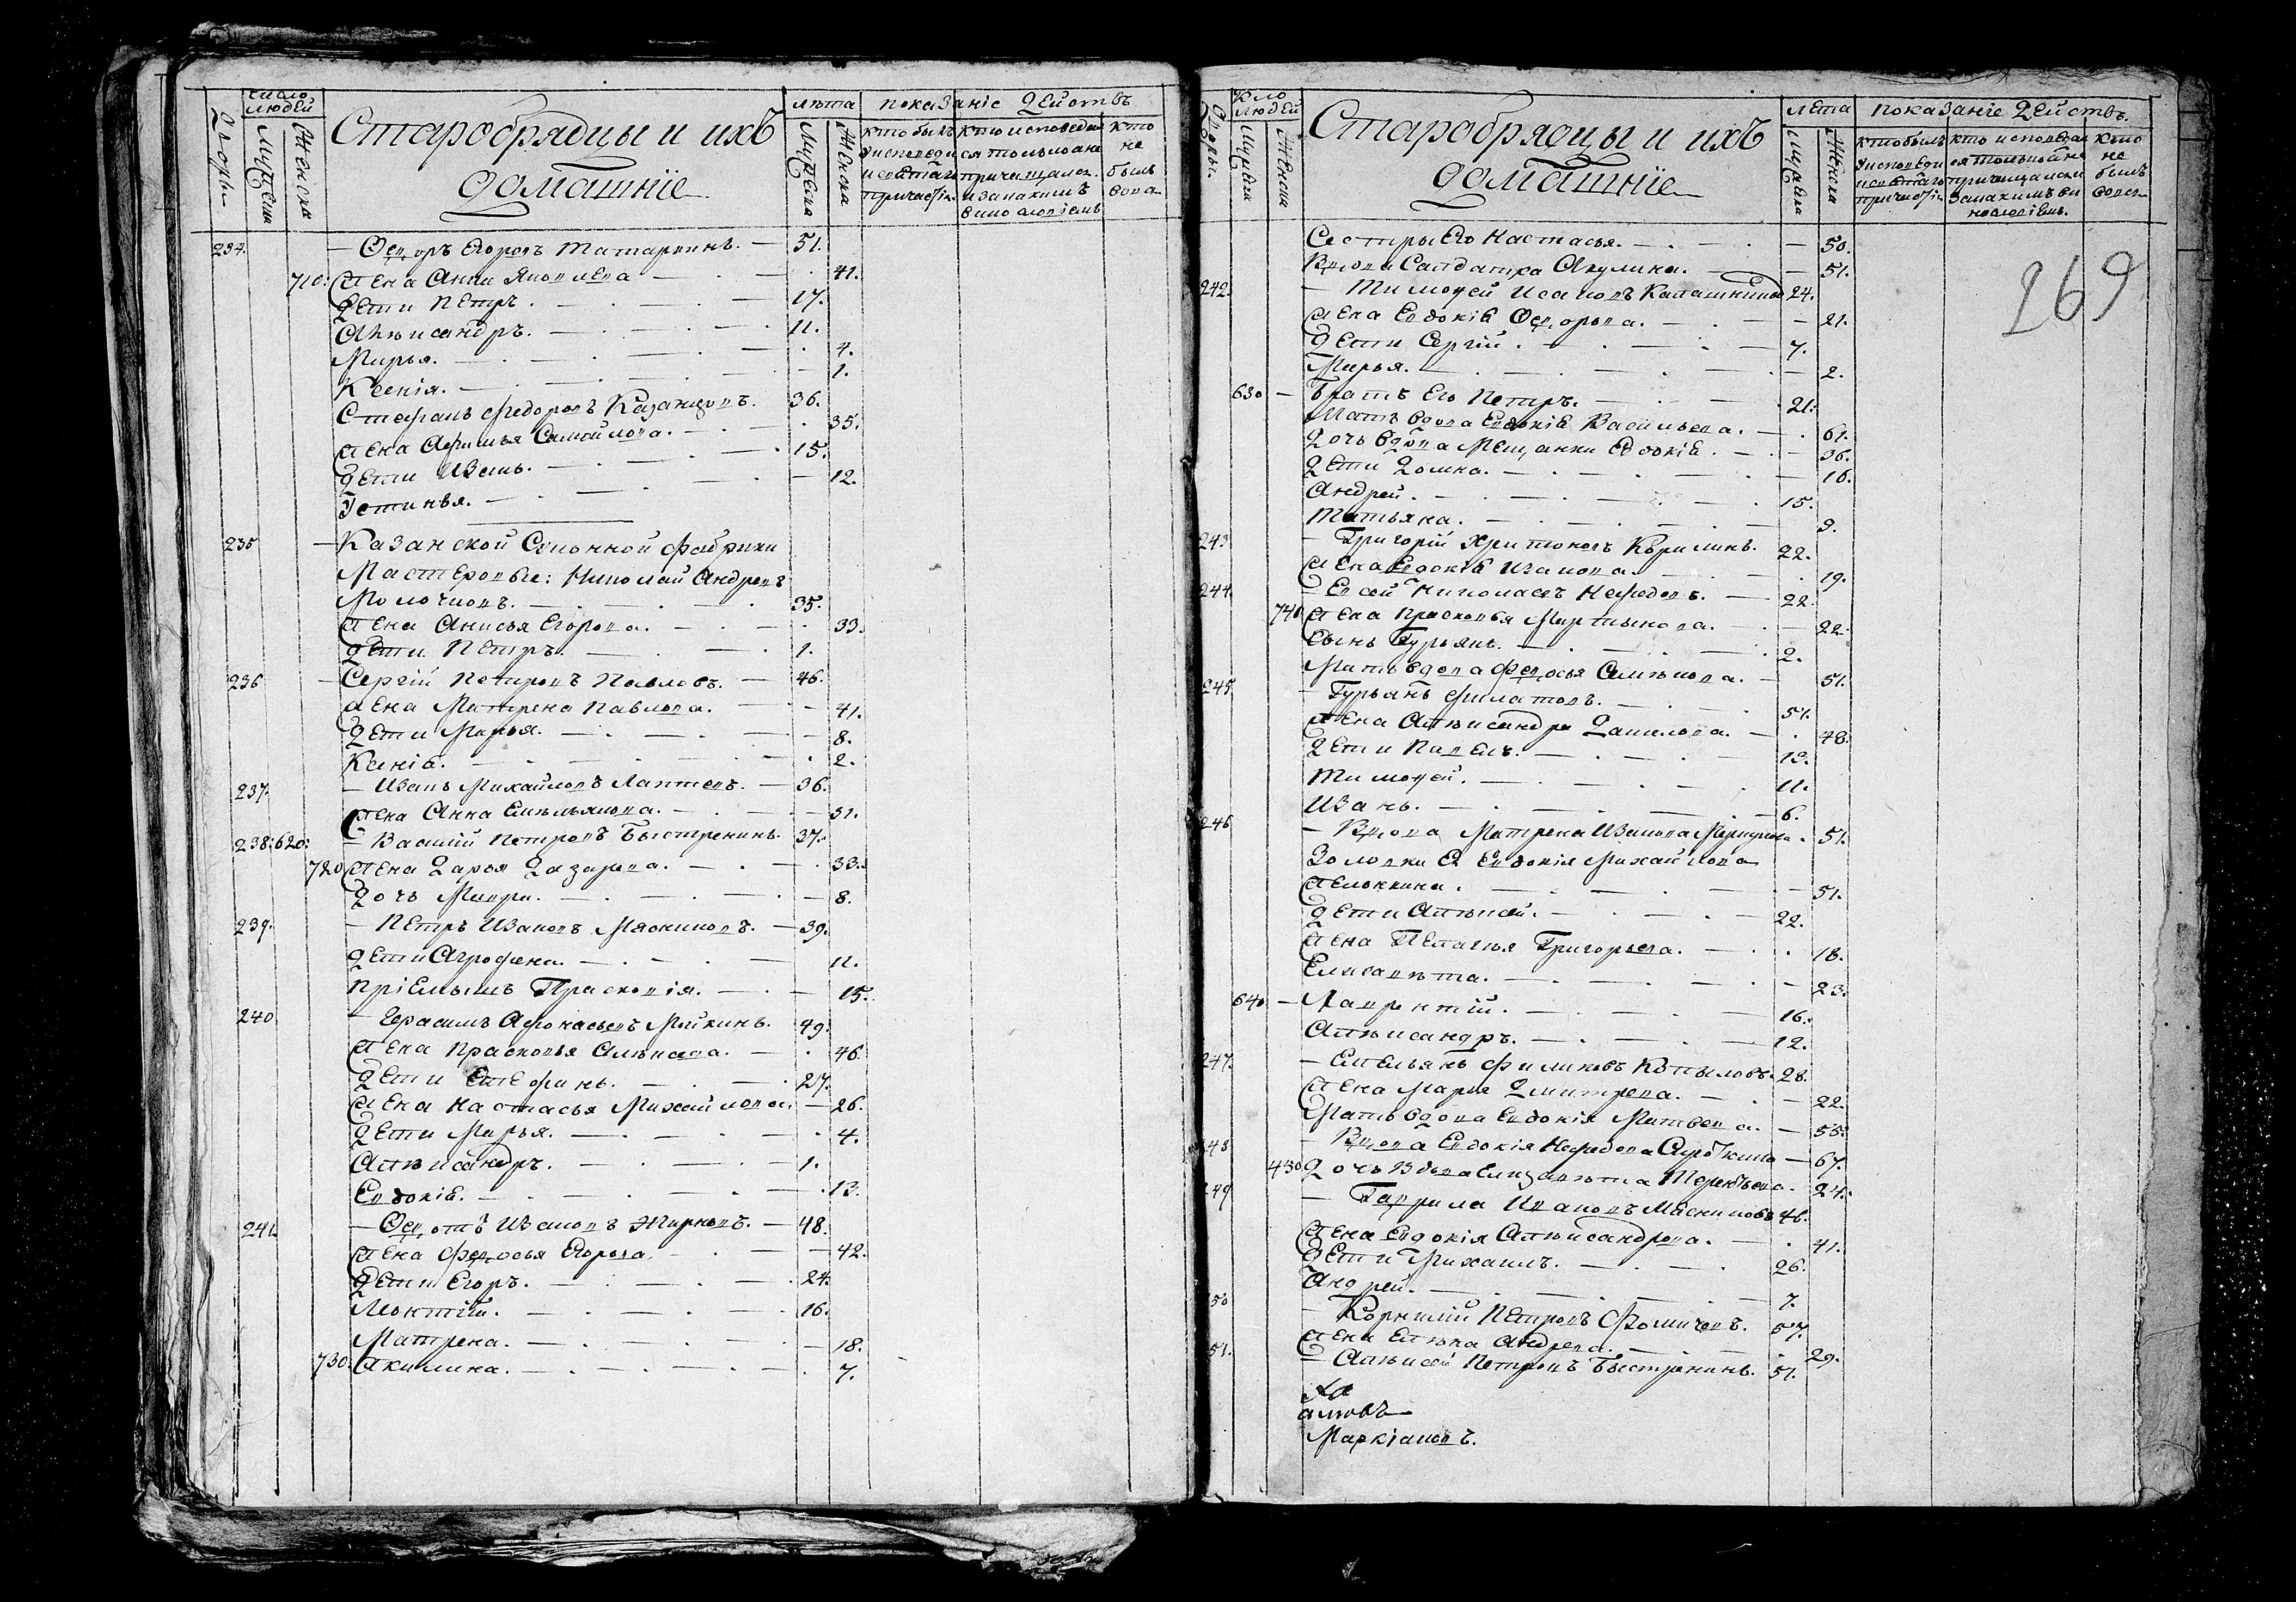 Число людей
Дворы
Мужеска
Женска
Старобрядцы и ихъ
домашнїе
лѣта
Мужеска
Женска
показанїе Действъ
кто былъ
у исповеди
и святаго
причастїя
кто исповедал
ся только а не
причащался
и за какимъ
винословїемъ
кто
не
былъ
234. — Ѳедоръ Егоровъ Татаркинъ. — 51.
710: Жена Анна Яковлева — 41.
Дети Петръ. — 17.
Алѣксандръ. — 11.
Марья. — 4.
Ксенїя. — 1.
Стефанъ Федоровъ Казанцовъ. 36.
Жена Афимья Самойлова. — 35.
Дети Иванъ. — 15.
Устинья. — 12.
235 — Казанской Суконной фабрики
Мастеровые: Николай Андревъ
Молочновъ. — 35.
Жена Анисья Егорова. — 33.
Дети Петръ. — 1.
236 — Сергїй Петровъ Павловъ. — 46.
Жена Матрена Павлова. — 41.
Дети Марья. — 8.
Ксенїя. — 2.
237. — Иванъ Михайловъ Лаптевъ. — 36.
Жена Анна Емѣльянова. — 31.
238: 620: — Василїй Петровъ Быстренинъ. 37.
720 Жена Дарья Лазарева. — 33.
Дочь Мавра. — 8.
239. — Петръ Ивановъ Мясниковъ. — 39.
Дети Агрофена. — 11.
Прїемышъ Прасковїя. — 15.
240 — Герасимъ Афонасьевъ Майкинъ. 49.
Жена Прасковья Алѣксева. — 46.
Дети Стефанъ. — 27.
Жена Настасья Михайлова. — 26.
Дети Марья. — 4.
Алѣксандръ. — 1.
Евдокїя. — 13.
241. — Ѳедотъ Ивановъ Жирновъ. — 48.
Жена Федосья Егорова — 42.
Дети Егоръ. — 24.
Леонтїй. — 16.
Матрена. — 18.
730. Акилина. — 7.
Число
людей
Дворы.
Мужеска
Женска
Старобрядцы и ихъ
домашнїе
лета
Мужеска
Женска
показанїе Действъ.
кто былъ
у исповеди
и святаго
причастїя
кто исповедал
ся только а не
причащался и
за какимъ ви
нословїемъ.
кто
не
былъ
269
Сестры Его Настасья. — 50.
Вдова Салдатка Акулина. — 51.
242. — Тимофей Исаковъ Калашниковъ 24.
Жена Евдокїя Ѳедорова. — 21.
Дети Сергїй. — 7.
Марья. — 2.
630 — Братъ Его Петръ. — 21.
Мать вдова Евдокїя Васильева. — 61.
Дочь вдова Мещанка Евдокїя. — 36.
Дети Домна. — 16.
Андрей. — 15.
Татьяна. — 9.
243 — Григорїй Харитоновъ Кирилинъ. 22.
Жена Евдокїя Иванова. — 19.
244. — Евсей Николаевъ Нефедовъ. — 22.
740. Жена Прасковья Мартынова. — 22.
Сынъ Гурьянъ. — 2.
Мать вдова Федосья Семѣнова. — 51.
245. — Гурьянъ Филатовъ. — 51.
Жена Алѣксандра Данилова. — 48.
Дети Павелъ. — 13.
Тимофей. — 11.
Иванъ. — 6.
246 — Вдова Матрена Иванова — 51.
Золовка Ея Евдокїя Михайлова
— 51.
Дети Алѣксей. — 22.
Жена Пелагья Григорьева. — 18.
Елисавѣта. — 23.
640. — Лаврентїй. — 16.
Алѣксандръ. — 12.
247. — Емельянъ Филиповъ Копыловъ. 28.
Жена Марья Дмитрева. — 22.
Мать вдова Евдокїя Матвева. — 58.
248 — Вдова Евдокїя Нефедова — 67.
750 Дочь Вдова Елизавѣта Терентьева. 24.
249 — Гаврила Ивановъ Мясниковъ 46.
Жена Евдокїя Алѣксандрова. — 41.
Дети Михаилъ. — 26.
Андрей. — 7.
50 — Корнилїй Петровъ Фомичовъ. 57.
Жена Елѣна Андрева. — 29.
51. — Алѣксей Петровъ Быстренинъ. 51.
Маркїановъ.